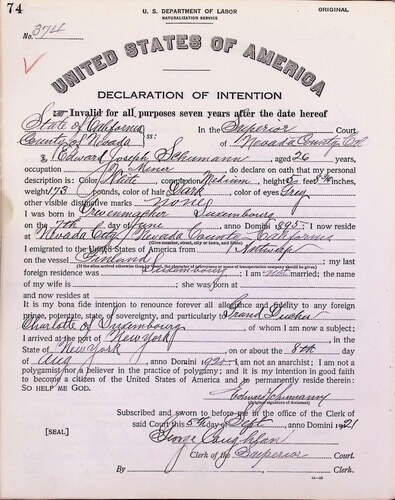 74
U. S. DEPARTMENT OF LABOR
NATURALIZATION SERVICE
ORIGINAL
No. 374
UNITED STATES OF AMERICA
DECLARATION OF INTENTION
Invalid for all purposes seven years after the date hereof
State of California
County of Nevada ss:
In the Superior Court
of Nevada County, Cal
I, Edward Joseph Schumann, aged 26 years,
occupation Miner, do declare on oath that my personal
description is: Color White, complexion Medium, height 5 feet inches,
weight 173 pounds, color of hair Dark, color of eyes Grey
other visible distinctive marks none
I was born in Grevenmacher Luxembourg
on the 7th day of June, anno Domini 1895; I now reside
at Nevada City, Nevada County, California
(Give number, street, city or town, and State)
I emigrated to the United States of America from Antwerp
on the vessel Finland; my last
(If the alien arrived otherwise than by vessel, the character of conveyance or name of transportation company should be given)
foreign residence was Luxembourg; I am not married; the name
of my wife is ; she was born at
and now resides at
It is my bona fide intention to renounce forever all allegiance and fidelity to any foreign
prince, potentate, state, or sovereignty, and particularly to Grand Duchess
Charlotte of Luxembourg, of whom I am now a subject;
I arrived at the port of New York, in the
State of New York, on or about the 8th day
of Aug, anno Domini 1920; I am not an anarchist; I am not a
polygamist nor a believer in the practice of polygamy; and it is my intention in good faith
to become a citizen of the United States of America and to permanently reside therein:
SO HELP ME GOD.
Edward Schumann
(Original signature of declarant)
Subscribed and sworn to before me in the office of the Clerk of
said Court this 5th day of Sept, anno Domini 1921
[SEAL]
George Coughlan
Clerk of the Superior Court.
By , Clerk.